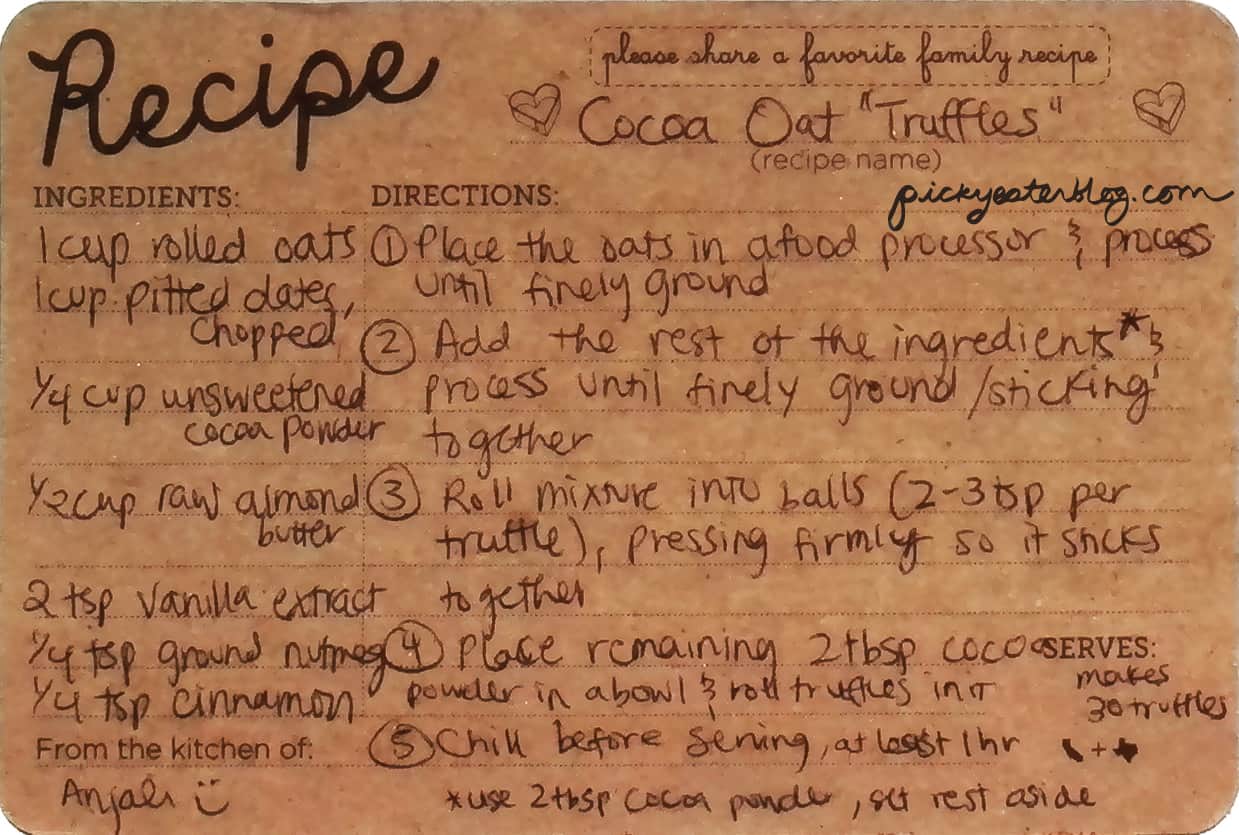 Recipe
please share a favorite family recipe
Cocoa Oat "Truffles"
(recipe name)
pickyeaterblog.com
INGREDIENTS:
1 cup rolled oats
1 cup pitted dates,
chopped
1/4 cup unsweetened
cocoa powder
1/2 cup raw almond
butter
2 tsp vanilla extract
1/4 tsp ground nutmeg
1/4 tsp cinnamon
From the kitchen of:
Anjali
DIRECTIONS:
① Place the oats in a food processor & process
until finely ground
② Add the rest of the ingredients* &
process until finely ground/sticking
together
③ Roll mixture into balls (2-3 tsp per
truffle), pressing firmly so it sticks
together
④ Place remaining 2 tbsp cocoa
powder in a bowl & roll truffles in it
⑤ Chill before serving, at least 1 hr
*use 2 tbsp cocoa powder, set rest aside
SERVES:
makes
30 truffles